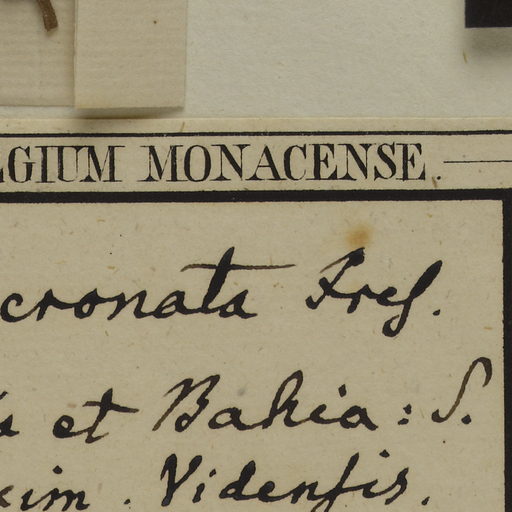 LGIUM MONACENSE.
cronata Fres.
et Bahia: S.
xim. Videnſis.